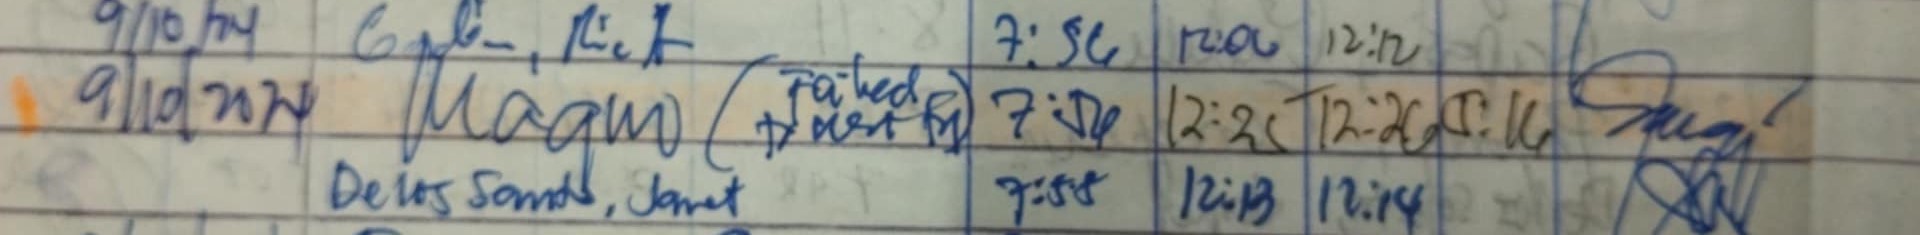 9/10/24 7:56 12:06 12:12
9/10/2024 Magno (Failed to 7:54 12:25 12:26 5:16
Delos Santos, Janet 7:58 12:13 12:14